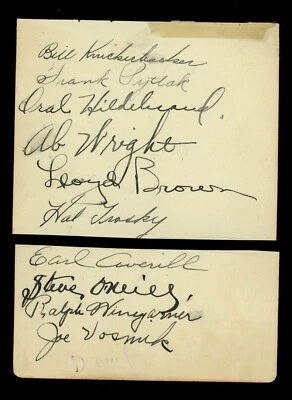 Bill Knickerbocker
Frank Pytlak
Oral Hildebrand
Ab Wright
Lloyd Brown
Hal Trosky
Earl Averill
Steve O'Neill
Ralph Winegarner
Joe Vosmik